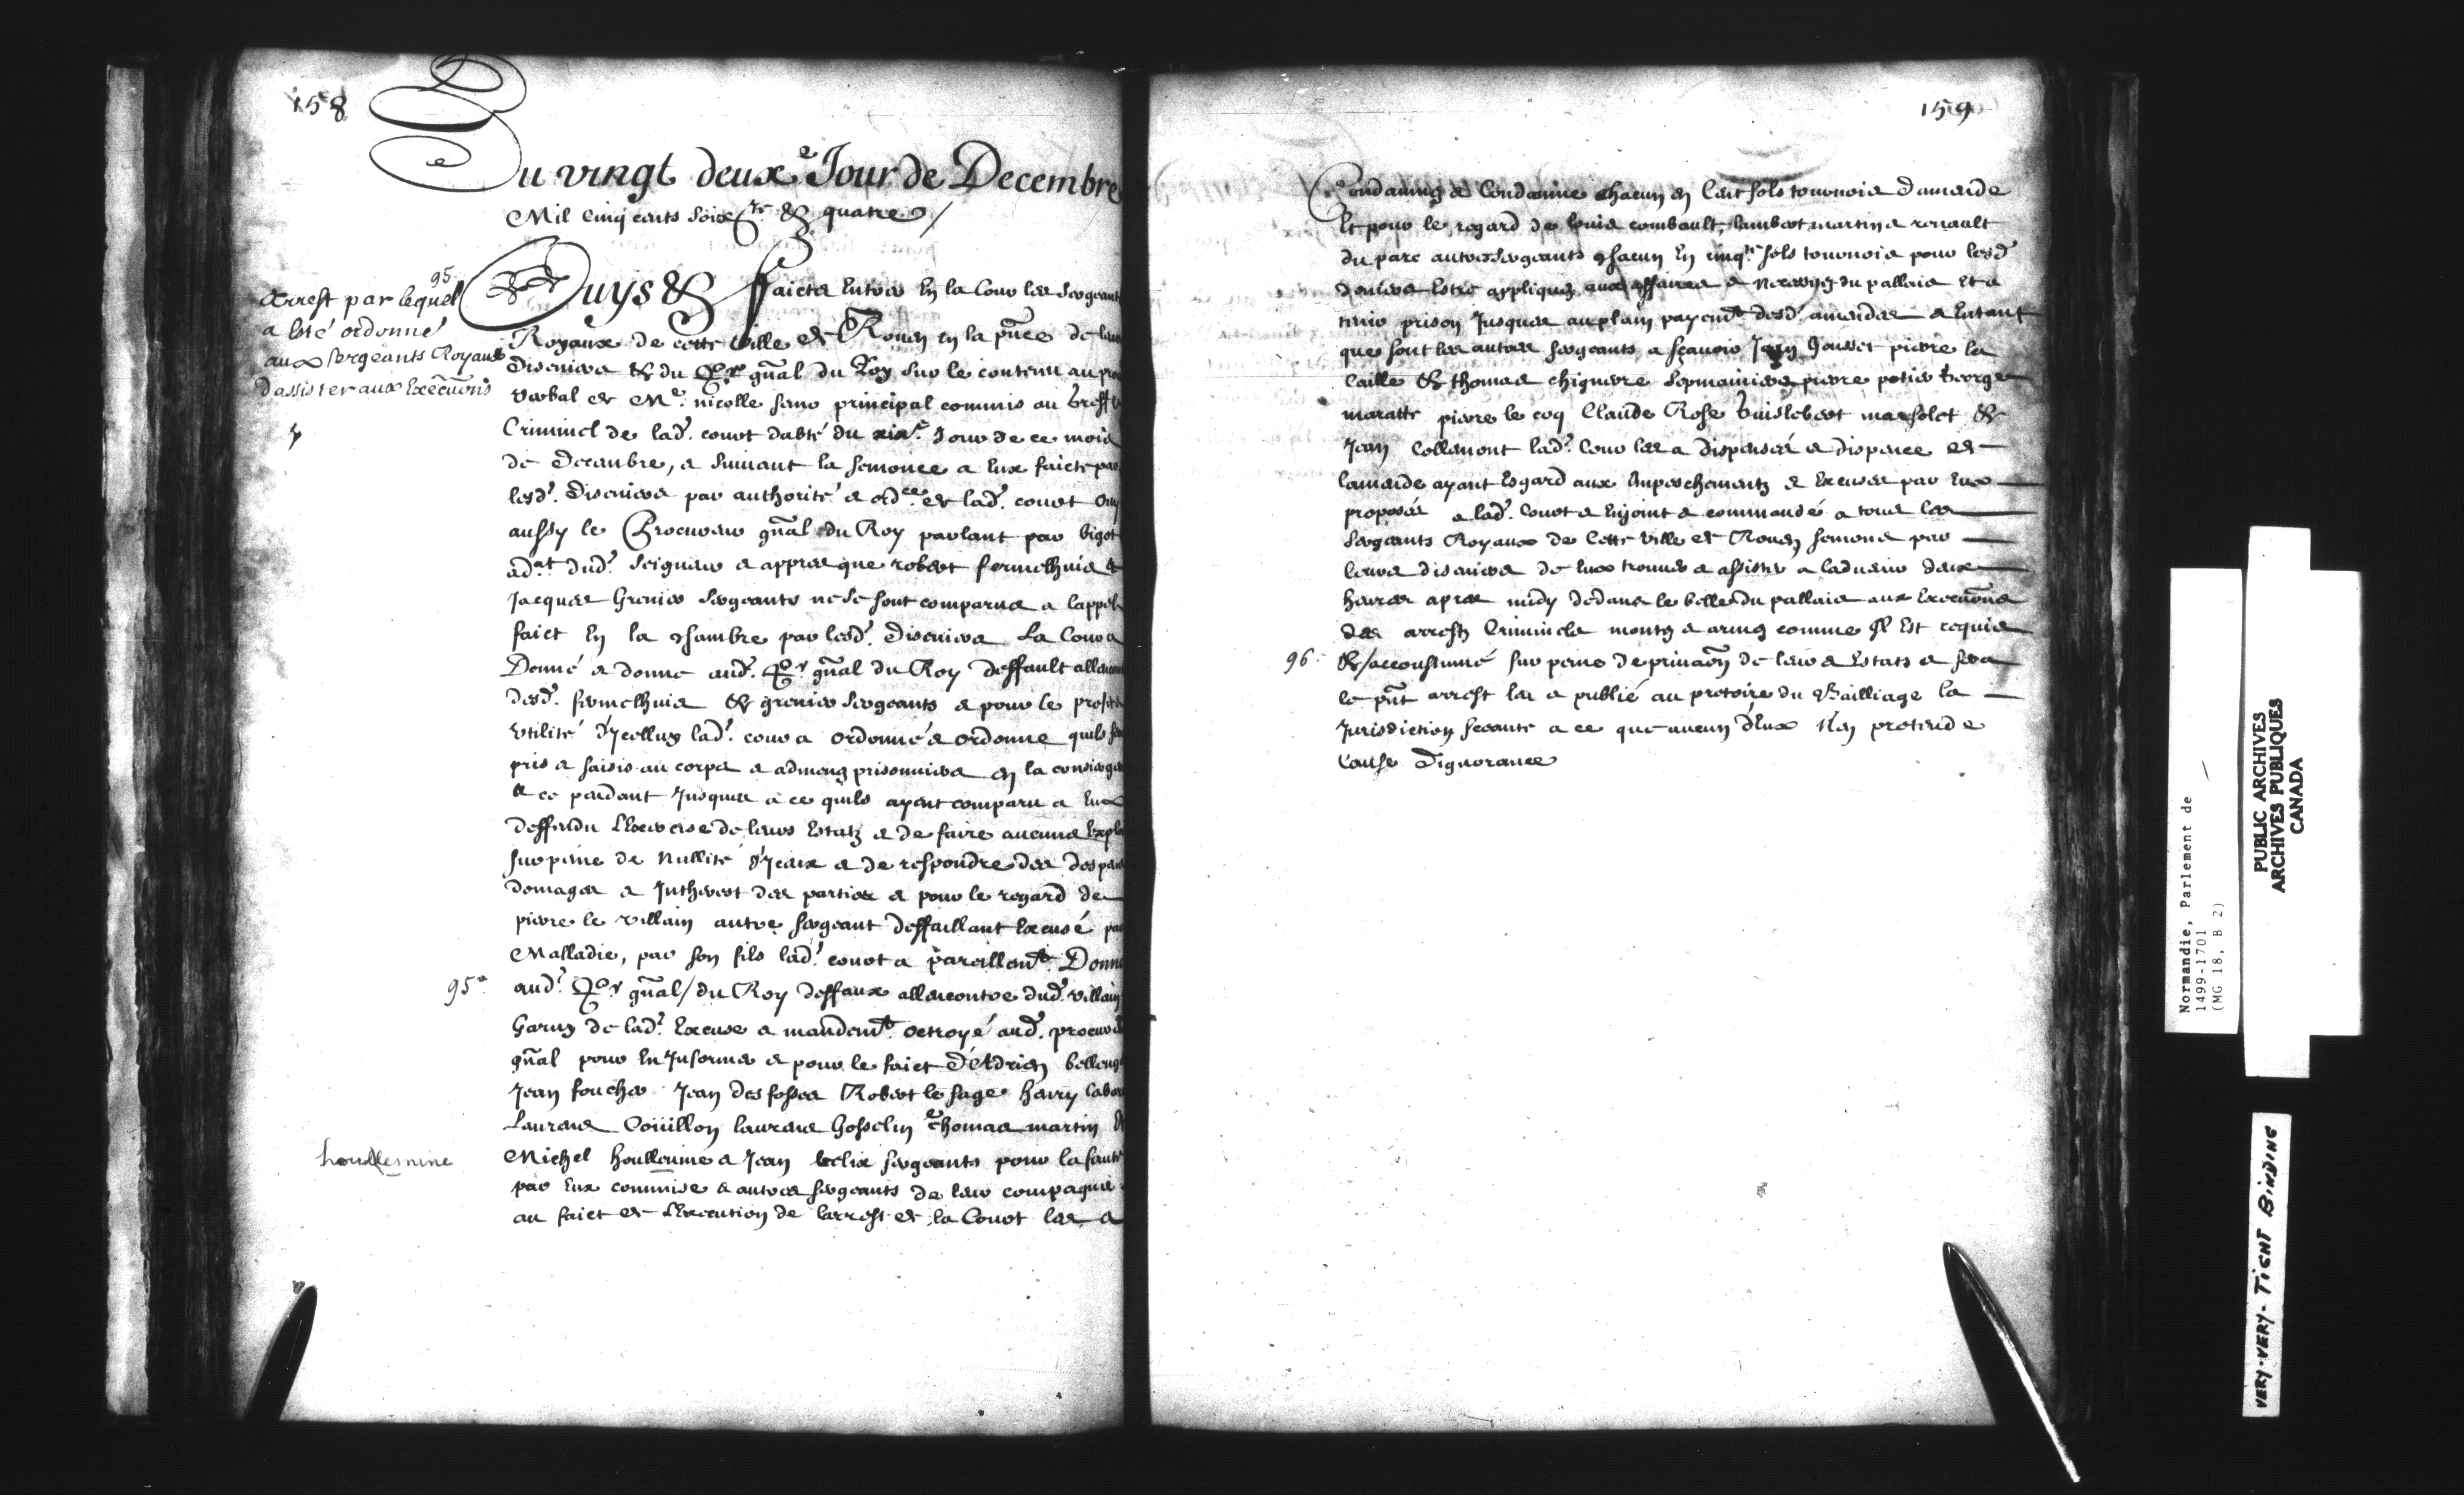 158
Du vingt deuxe Jour de Decembre
Mil cinq cents soixte & quatre /
95
Arrest par lequel
a esté ordonné
aux sergeants Royaux
dassister aux Execuons
Ouys & faictz entrer En la Cour les sergeant
Royaux de cette ville de Rouen en la pnce de leurs
diseniers & du Pr gnal du Roy sur le contenu au pro
verbal de Me nicolle principal commis au greffe
Criminel de lad. court dabté du xixe Jour de ce mois
de Decembre, & suivant la semonce a eux faicte par
lesd. diseniers par authorité & ordce de lad. court Ouy
aussy le Procureur gnal du Roy parlant par bigot
adat dud. seigneur & appres que robert
Jacques Grenier sergeants ne se sont comparus a lappel
faict En la chambre par lesd. diseniers La Cour a
Donné & donne aud. Pr gnal du Roy deffault allencon
desd. & grenier sergeants & pour le proffit &
Utilité d'Jcelluy lad. cour a ordonné & ordonne quils
pris & saisis au corps & admenez prisonniers en la
& ce pendant Jusques a ce quils ayent comparu a Eux
deffendu LExercise de leurs Estatz & de faire aucuns
sur peine de Nullité d'Jceux & de respondre des
domages & Jntherest des parties & pour le regard de
pierre le villain autre sergeant deffaillant Excusé par
Malladie, par son fils lad. court a pareillemt Donné
95
aud. Pr gnal / du Roy deffaux allencontre dud. villain
Garny de lad. Excuse & mandemt octroyé aud. procureur
gnal pour En Jnformer & pour le faict d'Adrien
Jean foucher Jean des fosses Robert le sage henry
Laurens Coüillon laurens Gosselin Thomas martin &
houllemine
Michel houllemine & Jean sergeants pour la faute
par Eux commise & autres sergeants de leur compagnie
au faict de LExecution de larrest de la Court les a
159
Condamnez & Condamne chacun en Cent sols tournois damende
Et pour le regard de louis combault, lambert martin & renault
du parc autres sergeants chacun En cinqte sols tournois pour lesd
deniers Estre appliquez aux affaires & necessitez du pallais Et a
tenir prison Jusques au plain payemt desd. amendes & Entant
que sont les autres sergeants a sçavoir Jean pierre la
Caille & thomas sepmainiers pierre potier George
maratte pierre le coq Claude Rose Guislebert marsolet &
Jean Collemont lad. Cour les a dispensés & dispence de
lamende ayant Esgard aux Empeschementz & Excuses par Eux
proposés & lad. Court a Enjoint & commandé a tous les
sergeants Royaux de Cette ville de Rouen semons par
leurs diseniers de Eux trouver & assister a ladvenir deux
heures apres midy dedans le belle du pallais aux Execuons
des arrestz Criminels montez & armez comme Il Est requis
96
&/accoustumé sur peine de privaon de leurs Estats & sera
le pnt arrest leu & publié au pretoire du Bailliage la
Jurisdiction seante a ce que aucun d'Eux N'en pretende
Cause d'ignorance
Normandie, Parlement de
1499-1701
(MG 18, B 2)
PUBLIC ARCHIVES
ARCHIVES PUBLIQUES
CANADA
VERY-VERY-TIGHT BINDING